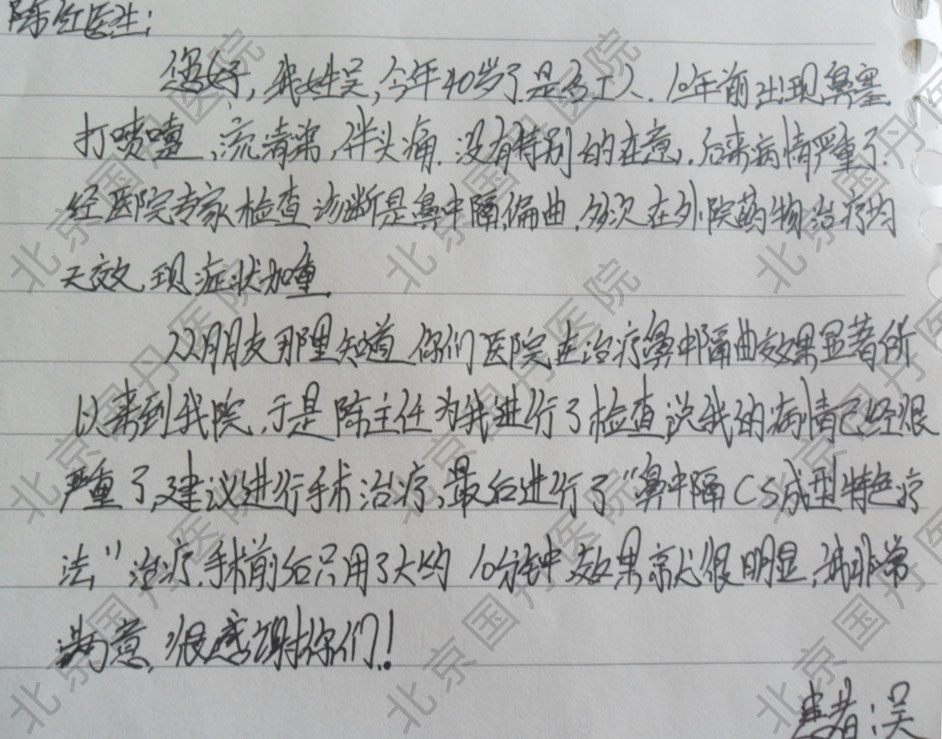 陈红医生:
您好,我姓吴,今年40岁了是名工人.10年前出现鼻塞
打喷嚏、流清涕,伴头痛.没有特别的在意.后来病情严重了.
经医院专家检查诊断是鼻中隔偏曲,多次在外院药物治疗均
无效,现症状加重.
从朋友那里知道你们医院在治疗鼻中隔曲效果显著所
以来到我院,于是陈主任为我进行了检查,说我的病情已经很
严重了,建议进行手术治疗,最后进行了“鼻中隔CS成型特色疗
法”治疗.手术前后只用了大约10分钟,效果就很明显,我非常
满意,很感谢你们!
患者:吴
北京国丹医院
北京国丹医院
北京国丹医院
北京国丹医院
北京国丹医院
北京国丹医院